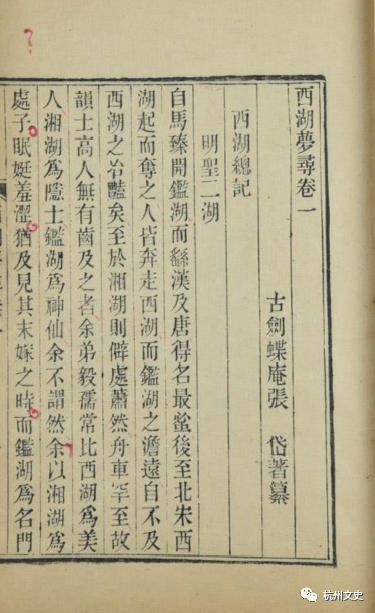 西湖夢尋卷一
古劍蝶庵張　岱著纂
西湖總記
明聖二湖
自馬臻開鑑湖而繇漢及唐得名最蚤後至北宋西
湖起而奪之人皆奔走西湖而鑑湖之澹遠自不及
西湖之冶豔矣至於湘湖則僻處蕭然舟車罕至故
韻士高人無有齒及之者余弟毅孺常比西湖爲美
人湘湖爲隱士鑑湖爲神仙余不謂然余以湘湖爲
處子眠娗羞澀猶及見其未嫁之時而鑑湖爲名門
杭州文史